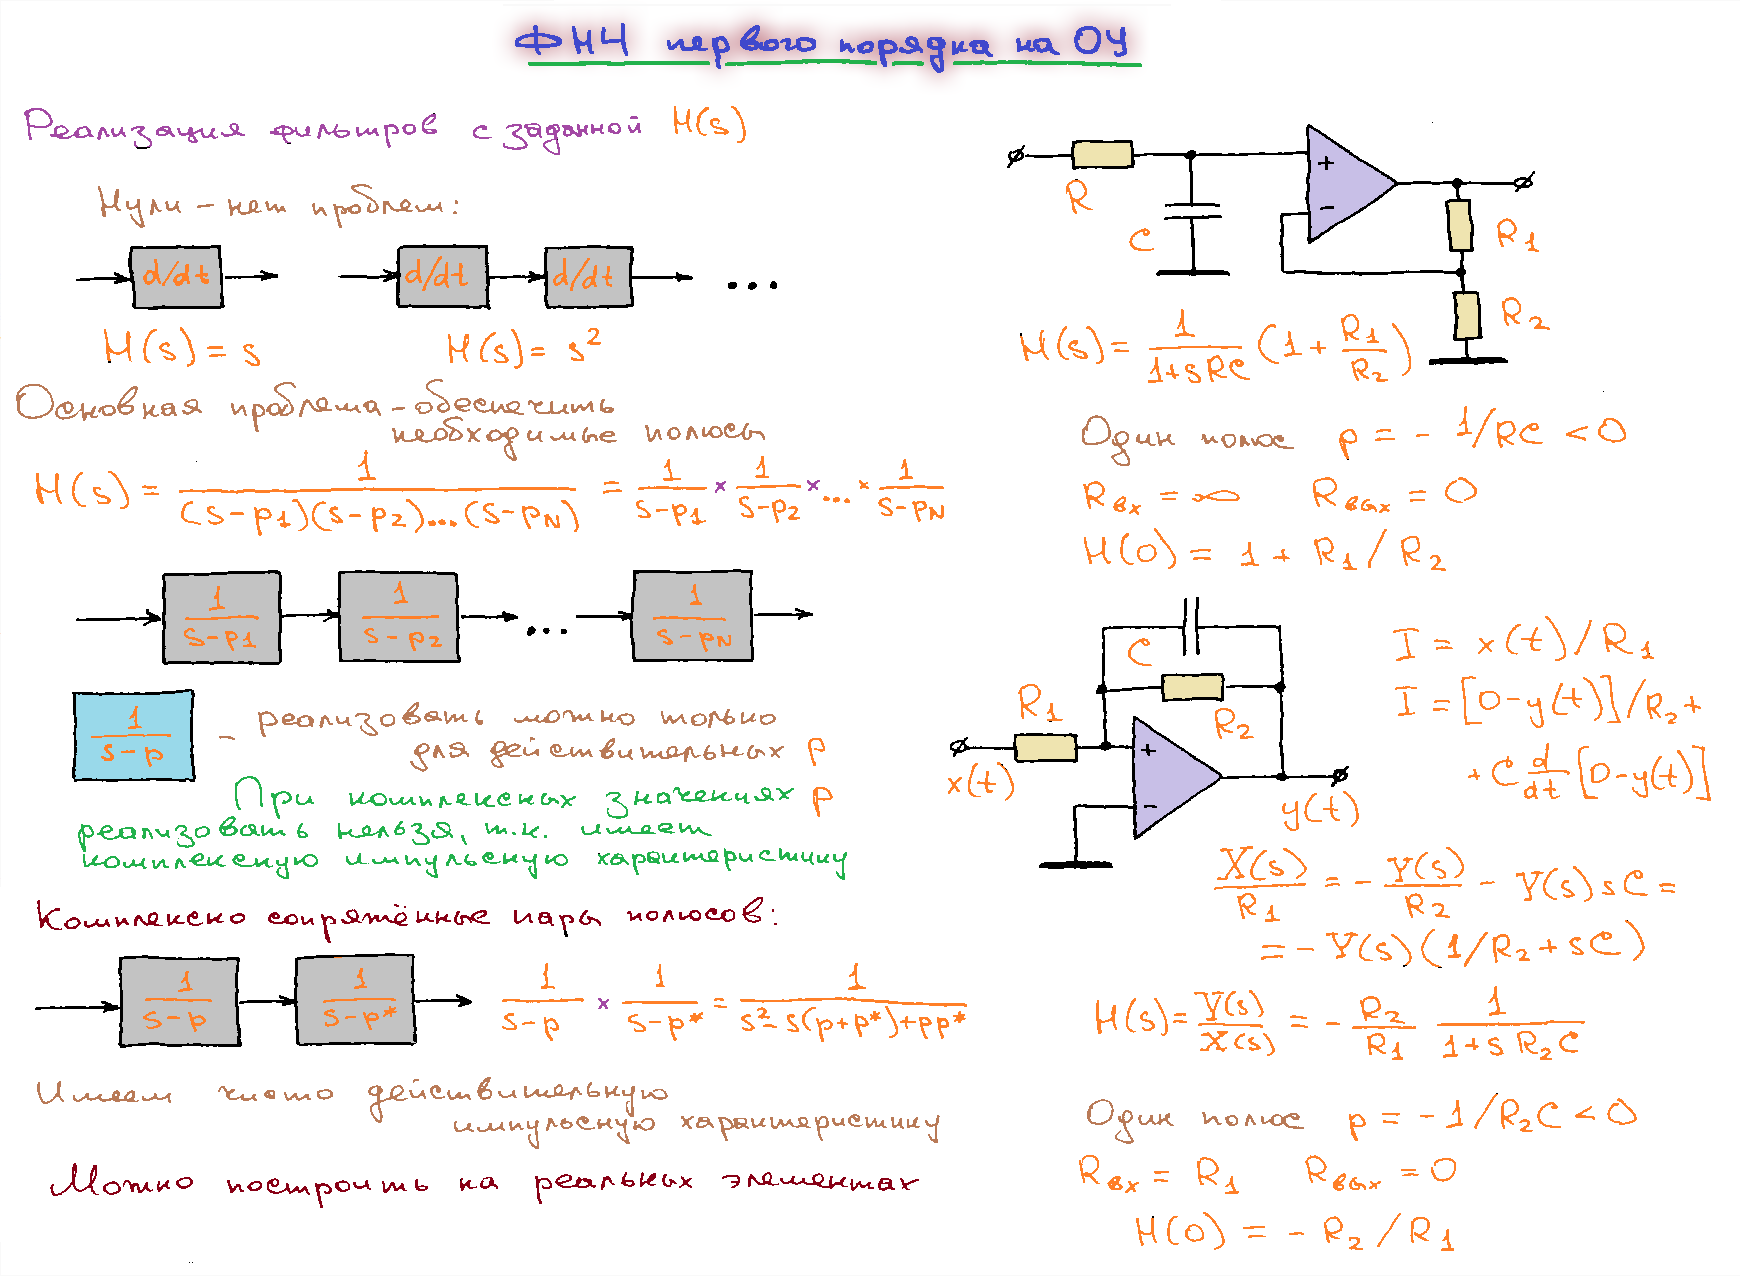 ФНЧ первого порядка на ОУ
Реализация фильтров с заданной H(s)
Нули – нет проблем:
d/dt
d/dt
d/dt
...
H(s) = s
H(s) = s²
Основная проблема – обеспечить
необходимые полюсы
H(s) = 1/((s-p1)(s-p2)...(s-pN)) = 1/(s-p1) × 1/(s-p2) × ... × 1/(s-pN)
1/(s-p1)
1/(s-p2)
...
1/(s-pN)
1/(s-p) – реализовать можно только
для действительных p
При комплексных значениях p
реализовать нельзя, т.к. имеет
комплексную импульсную характеристику
Комплексно сопряжённые пары полюсов:
1/(s-p)
1/(s-p*)
1/(s-p) × 1/(s-p*) = 1/(s²-s(p+p*)+pp*)
Имеем чисто действительную
импульсную характеристику
Можно построить на реальных элементах
R
C
+
-
R1
R2
H(s) = 1/(1+sRC) (1 + R1/R2)
Один полюс p = - 1/RC < 0
Rвх = ∞ Rвых = 0
H(0) = 1 + R1 / R2
C
R1
R2
x(t)
+
-
y(t)
I = x(t)/R1
I = [0-y(t)]/R2 +
+ C d/dt [0-y(t)]
X(s)/R1 = - Y(s)/R2 - Y(s)sC =
= - Y(s)(1/R2 + sC)
H(s) = Y(s)/X(s) = - R2/R1 1/(1+s R2C)
Один полюс p = -1/R2C < 0
Rвх = R1 Rвых = 0
H(0) = - R2 / R1